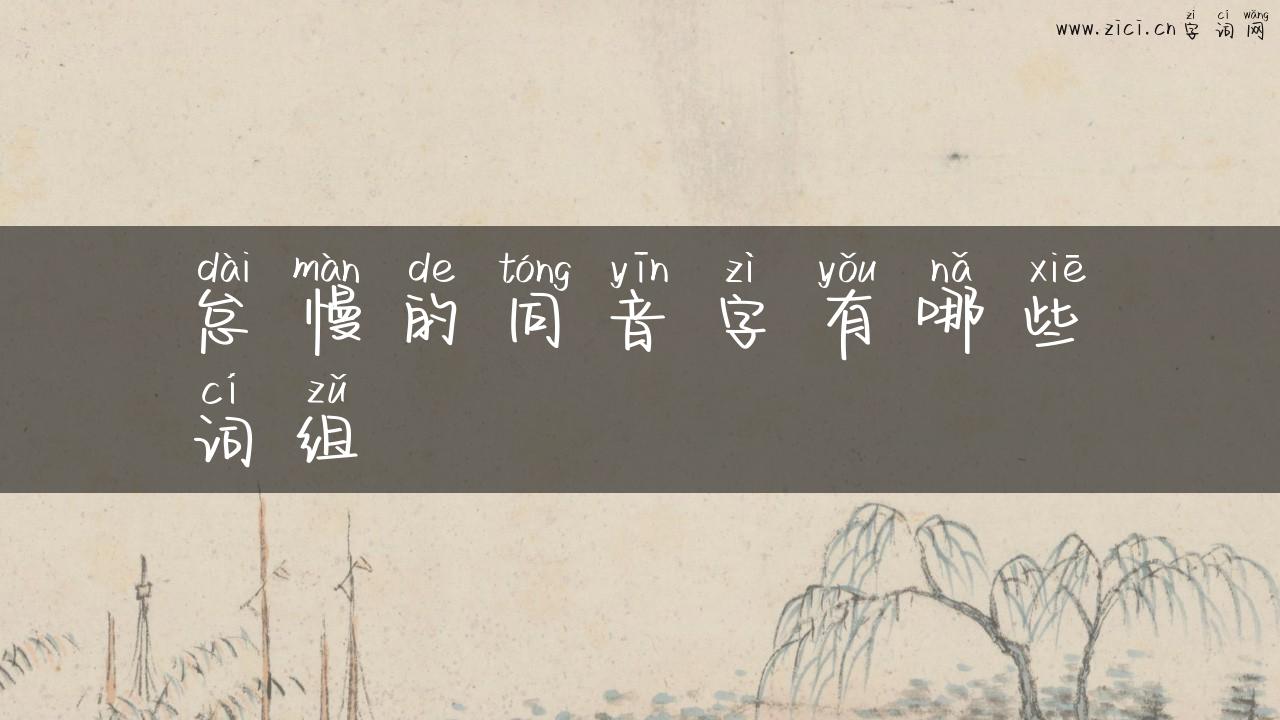 zì cí wǎng
www.zici.cn 字词网
dài màn de tóng yīn zì yǒu nǎ xiē
怠慢的同音字有哪些
cí zǔ
词组